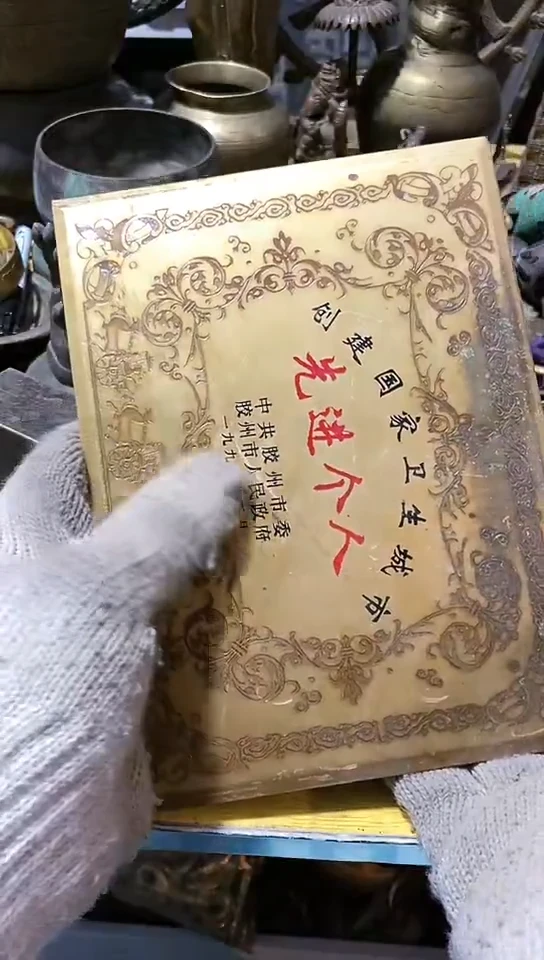 创建国家卫生城市
先进个人
中共胶州市委
胶州市人民政府
一九九
日